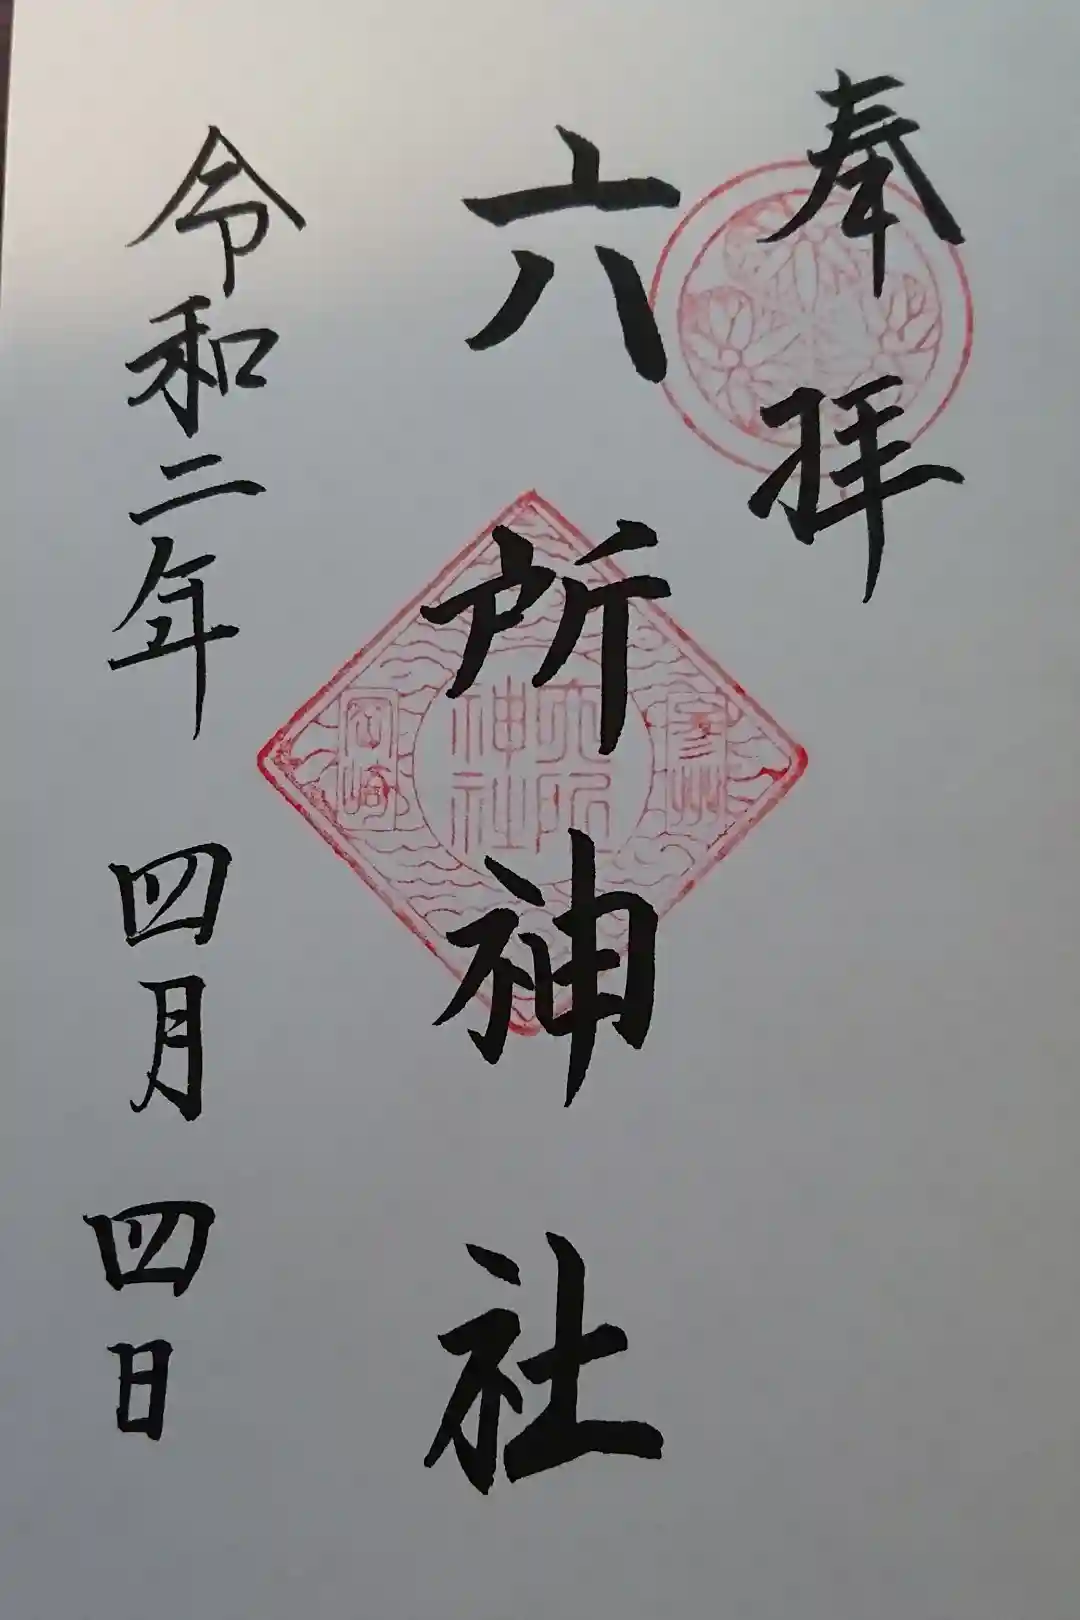 奉拝
六所神社
参州
六所
神社
岡崎
令和二年 四月 四日